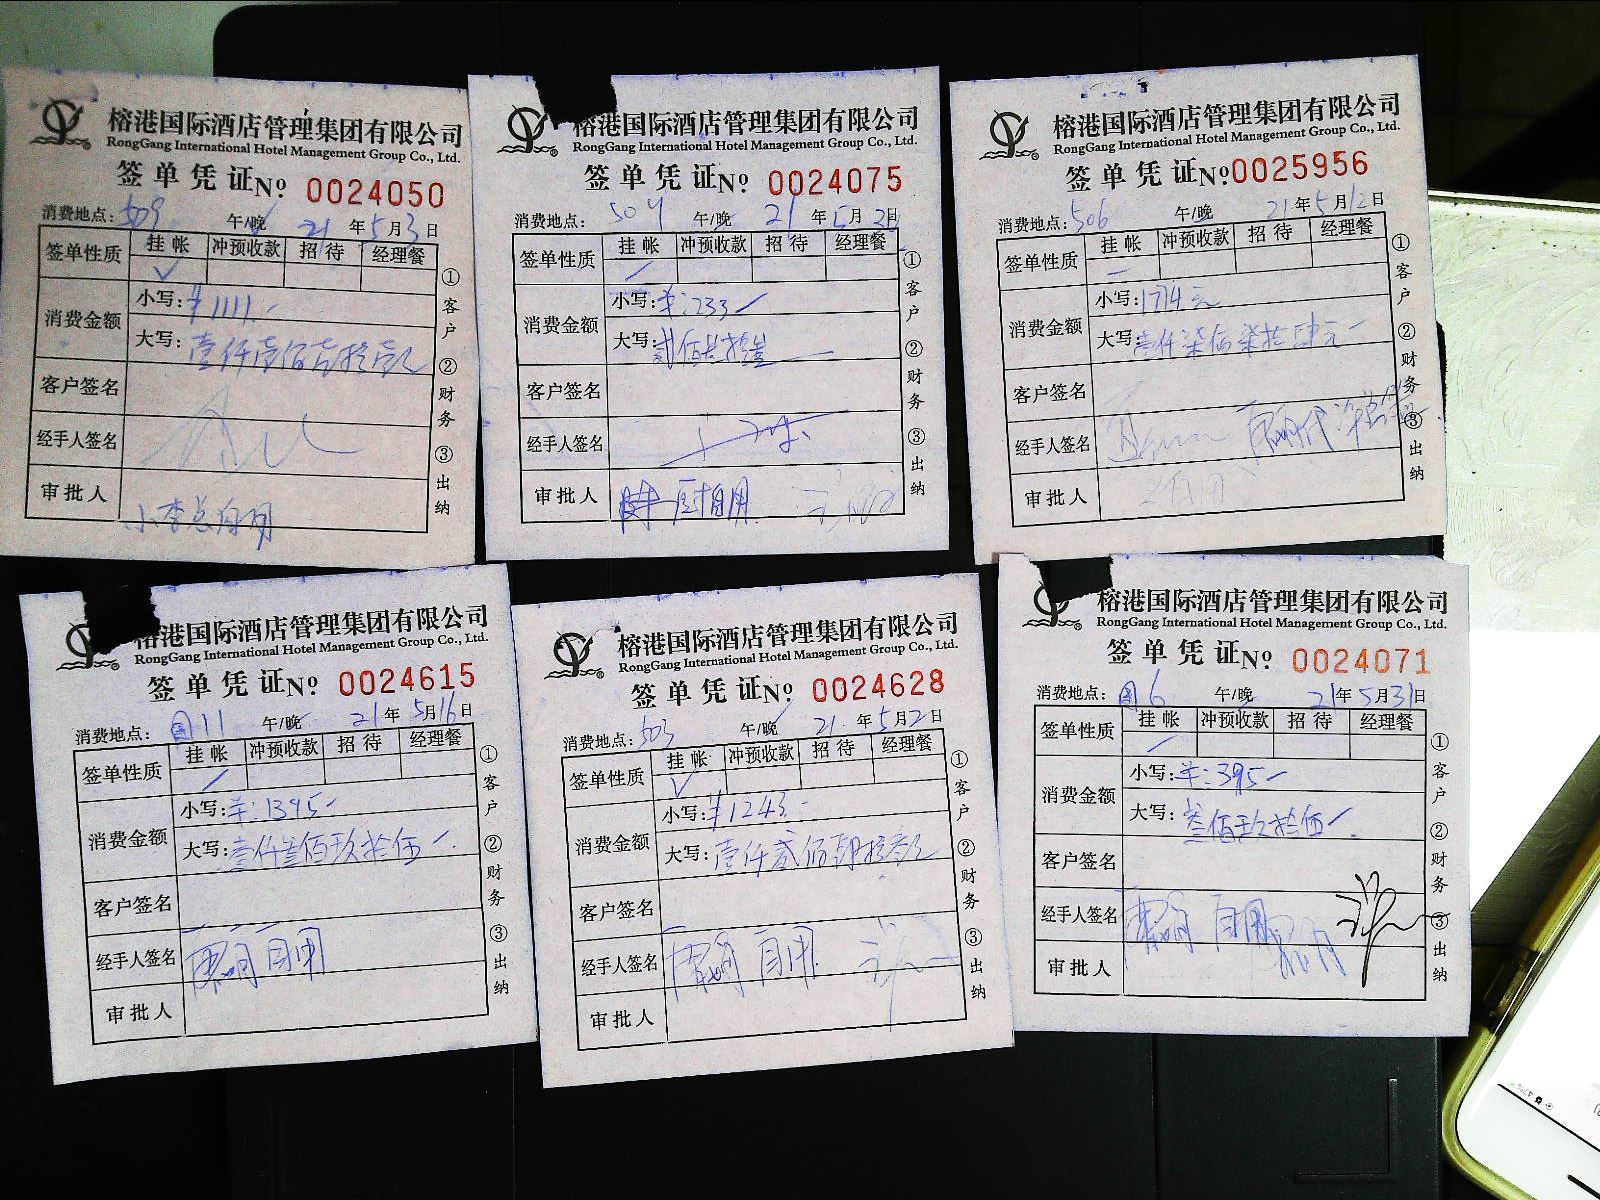 榕港国际酒店管理集团有限公司
RongGang International Hotel Management Group Co., Ltd.
签单凭证 Nº 0024050
消费地点: 509 午/晚 21年5月3日
签单性质 挂帐 冲预收款 招待 经理餐
✓
消费金额 小写: ¥1111.-
大写: 壹仟壹佰壹拾壹元
客户签名
经手人签名
审批人
小李总自用
①客户 ②财务 ③出纳
榕港国际酒店管理集团有限公司
RongGang International Hotel Management Group Co., Ltd.
签单凭证 Nº 0024075
消费地点: 午/晚 21年5月 日
签单性质 挂帐 冲预收款 招待 经理餐
消费金额 小写: ¥:233
大写: 贰佰叁拾叁
客户签名
经手人签名
审批人
①客户 ②财务 ③出纳
榕港国际酒店管理集团有限公司
RongGang International Hotel Management Group Co., Ltd.
签单凭证 Nº 0025956
消费地点: 506 午/晚 21年5月12日
签单性质 挂帐 冲预收款 招待 经理餐
消费金额 小写: 1774元
大写: 壹仟柒佰柒拾肆元
客户签名
经手人签名
审批人
①客户 ②财务 ③出纳
榕港国际酒店管理集团有限公司
RongGang International Hotel Management Group Co., Ltd.
签单凭证 Nº 0024615
消费地点: 园11 午/晚 21年5月16日
签单性质 挂帐 冲预收款 招待 经理餐
消费金额 小写: ¥:1395
大写: 壹仟叁佰玖拾伍
客户签名
经手人签名 自用
审批人
①客户 ②财务 ③出纳
榕港国际酒店管理集团有限公司
RongGang International Hotel Management Group Co., Ltd.
签单凭证 Nº 0024628
消费地点: 503 午/晚 21年5月2日
签单性质 挂帐 冲预收款 招待 经理餐
✓
消费金额 小写: ¥1243.-
大写: 壹仟贰佰肆拾叁元
客户签名
经手人签名 自用
审批人
①客户 ②财务 ③出纳
榕港国际酒店管理集团有限公司
RongGang International Hotel Management Group Co., Ltd.
签单凭证 Nº 0024071
消费地点: 园6 午/晚 21年5月31日
签单性质 挂帐 冲预收款 招待 经理餐
消费金额 小写: ¥:395
大写: 叁佰玖拾伍
客户签名
经手人签名 自用
审批人
①客户 ②财务 ③出纳